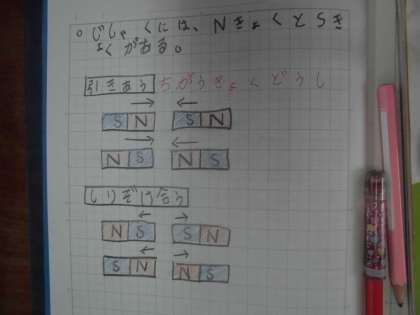 ○じしゃくには、NきょくとSき
ょくがある。
引きあう ちがうきょくどうし
S N S N
N S N S
しりぞけ合う
N S S N
S N N S